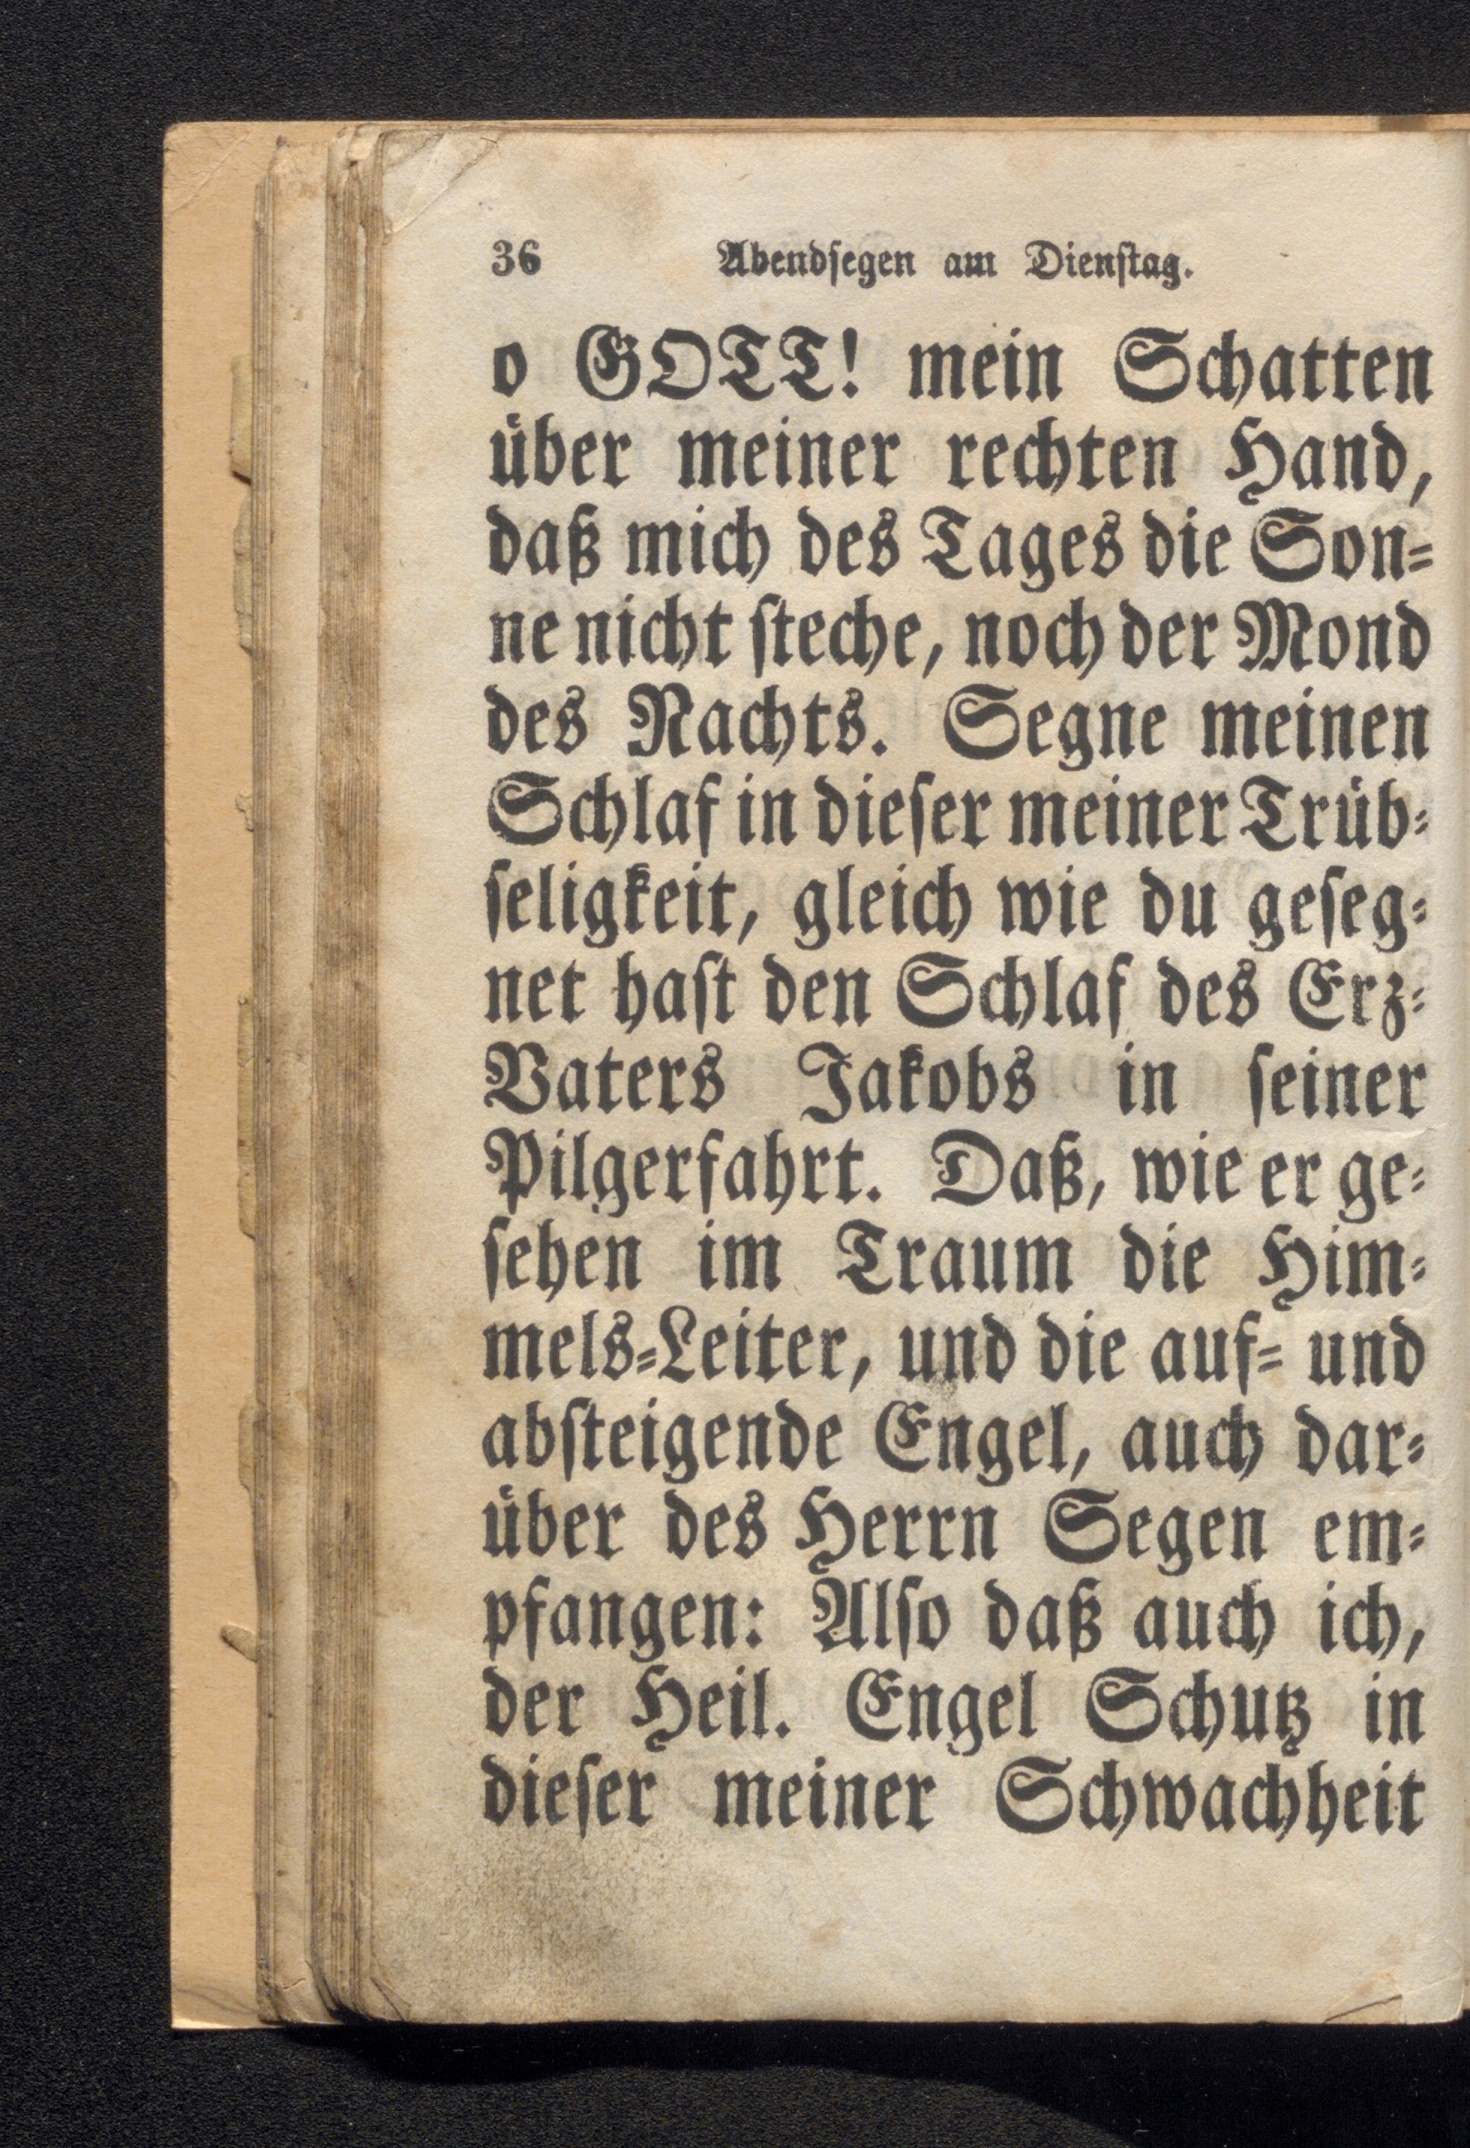 36 Abendſegen am Dienſtag.
o GOTT! mein Schatten
über meiner rechten Hand,
daß mich des Tages die Son-
ne nicht ſteche, noch der Mond
des Nachts. Segne meinen
Schlaf in dieſer meiner Trüb-
ſeligkeit, gleich wie du geſeg-
net haſt den Schlaf des Erz-
Vaters Jakobs in ſeiner
Pilgerfahrt. Daß, wie er ge-
ſehen im Traum die Him-
mels-Leiter, und die auf- und
abſteigende Engel, auch dar-
über des Herrn Segen em-
pfangen: Alſo daß auch ich,
der Heil. Engel Schutz in
dieſer meiner Schwachheit